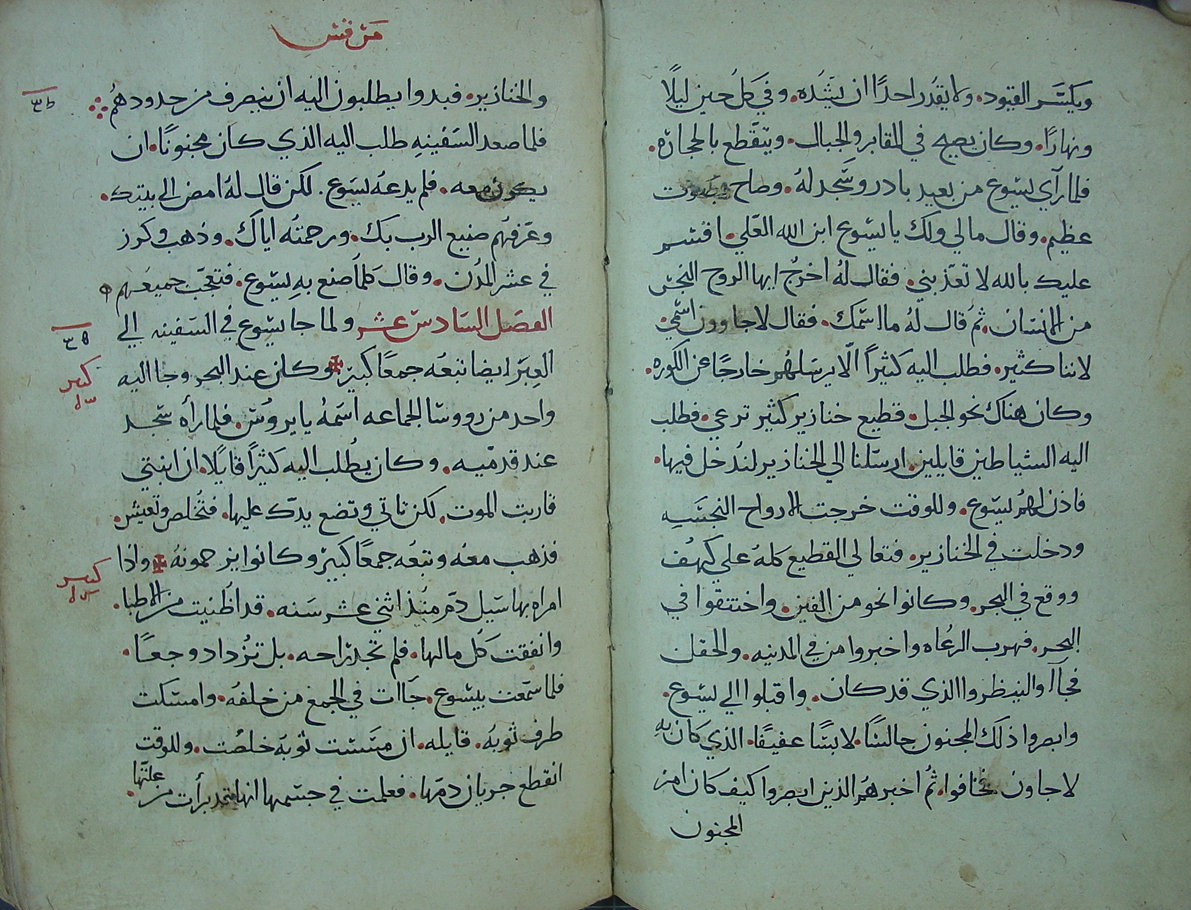 ويكسَّر القيود. ولا يقُدر احدًا ان يشَدُه. وفي كل حين ليلًا
ونهارًا. وكان يصيح في المقابر والجبال. ويتقَطع بالحجاره.
فلما رآي يسَوع من بعيد بادر وسَجد لهُ. وصاح بصَوت
عظيم. وقال مالي ولك يا يسَوع ابن الله العَلي. اقسَم
عليك بالله لا تعَذبني. فقال لهُ اخرُج ايها الروح النجسَ
من الانسَان. ثمُ قال لهُ ما اسَمك. فقال لاجاوون اسَمي.
لاننا كثير. فطلب اليه كثيراً الّا يرسَلهُم خارجًا عن الكوره.
وكان هناك نحو الجبل. قطيع خنازير كثير ترعي. فطلب
اليه الشياطين قايلين. ارسَلنا الي الخنازير لندُخل فيها.
فاذن لهُم يسَوع. وللوقت خرجت الارواح النجسَه
ودخلت في الخنازير. فتعالي القطيع كلهُ علي كهُف
ووقع في البحر. وكانوا نحو من الفين. واختنقوا في
البحر. فهرب الرعُاه واخبروا من في المدينه. والحقل
فجاأا والينظروا الذي قد كان. واقبلوا الي يسَوع.
وابصروا ذلك المجنون جالسًا. لابسًا عفيفًا. الذي كان به
لاجاون فخافوا. ثمُ اخبرهمُ الذين ابصروا كيف كان امر
المجنون
مَرقسَ
والخنازير. فبدوا يطلبون اليه ان ينصرف من حدودهمُ
فلما صعد السَفينهِ طلب اليه الذي كان مجنونًا. ان
يكون معه. فلم يدعهُ يسَوع. لكن قال لهُ امض الي بيتك.
وعَرفهُم صنيع الرب بك. ورحمتهُ اياك. وذهب وكرز
في عشر المدُن. وقال كلما صنع بهِ يسَوع. فتعجَب جميعهم
الفصَل السَادسَ عشر ولما جا يسَوع في السَفينه الي
العبَر ايضا تبعُه جمعًا كبير وكان عند البحر وجا اليه
واحد من رووسَا الجماعه اسَمهُ يايروسُ. فلما رأه سَجد
عند قدميه. وكان يطُلب اليه كثيراً قايلًا. ان ابنتي
قاربت الموت. لكن تاتي وتضع يدك عليها. فتخُلص وتعيش.
فذهب معهُ وتبعُه جمعًا كبير وكانوا يزحمونهُ واذا
امراه بها سَيل دمَ منُذ اثني عشر سَنه. قد اظُنيت من الاطبا.
وانفقت كل مالها. فلم تجد راحه. بل تزُداد وجعًا.
فلما سَمعَت بيسَوع. جاات في الجمع من خلفهَ. وامسَكت
طرف ثوبهُ. قايله. ان مسَسَت ثوبهَ خلصُت. وللوقت
انقطع جريان دمهَا. فعلمت في جسَمها انها قد برأت من علتهَا.